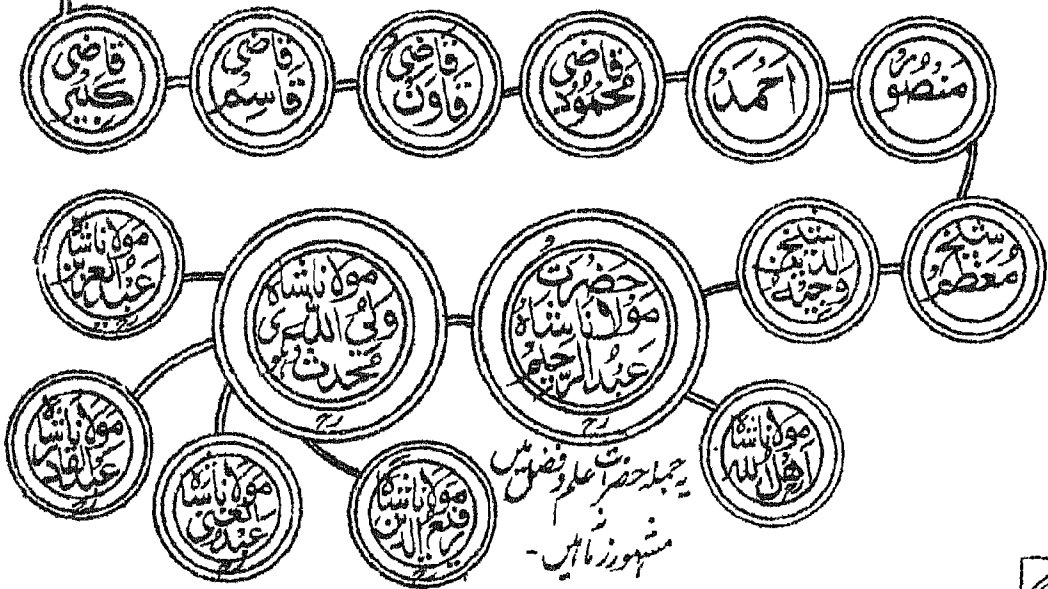 منصور
احمد
قاضی محمود
قاضی قاون
قاضی قاسم
قاضی کبیر
شیخ معظم
شیخ وجیہ الدین
حضرت مولانا شاہ عبد الرحیم رح
مولانا شاہ ولی اللہ محدث رح
مولانا شاہ عبد العزیز رح
مولانا شاہ اہل اللہ رح
مولانا شاہ رفیع الدین رح
مولانا شاہ عبد الغنی رح
مولانا شاہ عبد القادر رح
یہ جملہ حضرات علم و فضل میں
مشہور زمانہ ہیں۔